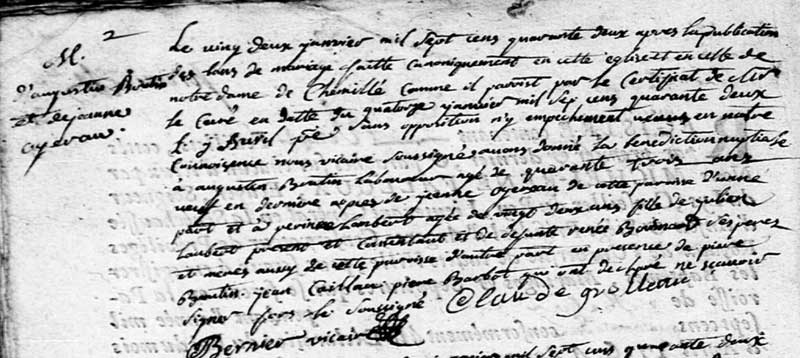 M. 2
d'augustin Boutin
et de jeanne
ayerau.
Le vingt deux janvier mil sept cens quarante deux apres la publication
des bans de mariage faitte canoniquement en cette eglise et en celle de
notre dame de Chemillé comme il paroist par le Certifiat de Mr
le Curé en datte du quatorze janvier mil sept cens quarante deux
sans opposition n'y empechement venus en notre
Connoissence nous vicaire soussigné avons donné la benediction nuptialle
à augustin Boutin laboureur agé de quarante trois ans
veuf en derniere nopces de jeanne ayereau de cette paroisse d'une
part et à perinne Lambert agée de vingt deux ans fille de julien
Lambert present et Consentant et de defunte renée ses pere
et meres aussy de cette paroisse d'autre part en presence de pierre
Boutin jean Caillau pierre Barbot qui ont declaré ne scavoir
signer fors le soussigné Claude
Bernier vicaire
janvier mil sept cens quarante deux